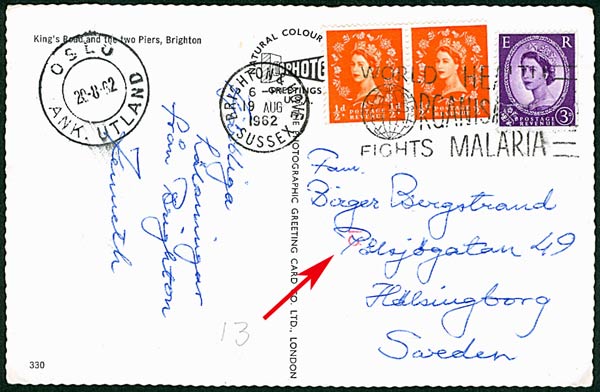 King's Road and the two Piers, Brighton
OSLO
20-8-62
ANK. UTLAND
NATURAL COLOUR
PHOTOGRAPHIC GREETING CARD CO. LTD., LONDON
GREETINGS
BRIGHTON & HOVE
6-
19 AUG
1962
SUSSEX
½d
POSTAGE
REVENUE
½d
POSTAGE
REVENUE
E R
POSTAGE
REVENUE
3d
WORLD HEALTH
ORGANISATION
FIGHTS MALARIA
Hälsningar
från Brighton
Kenneth
Fam.
Birger Bergstrand
Pålsjögatan 49
Hälsingborg
Sweden
13
330